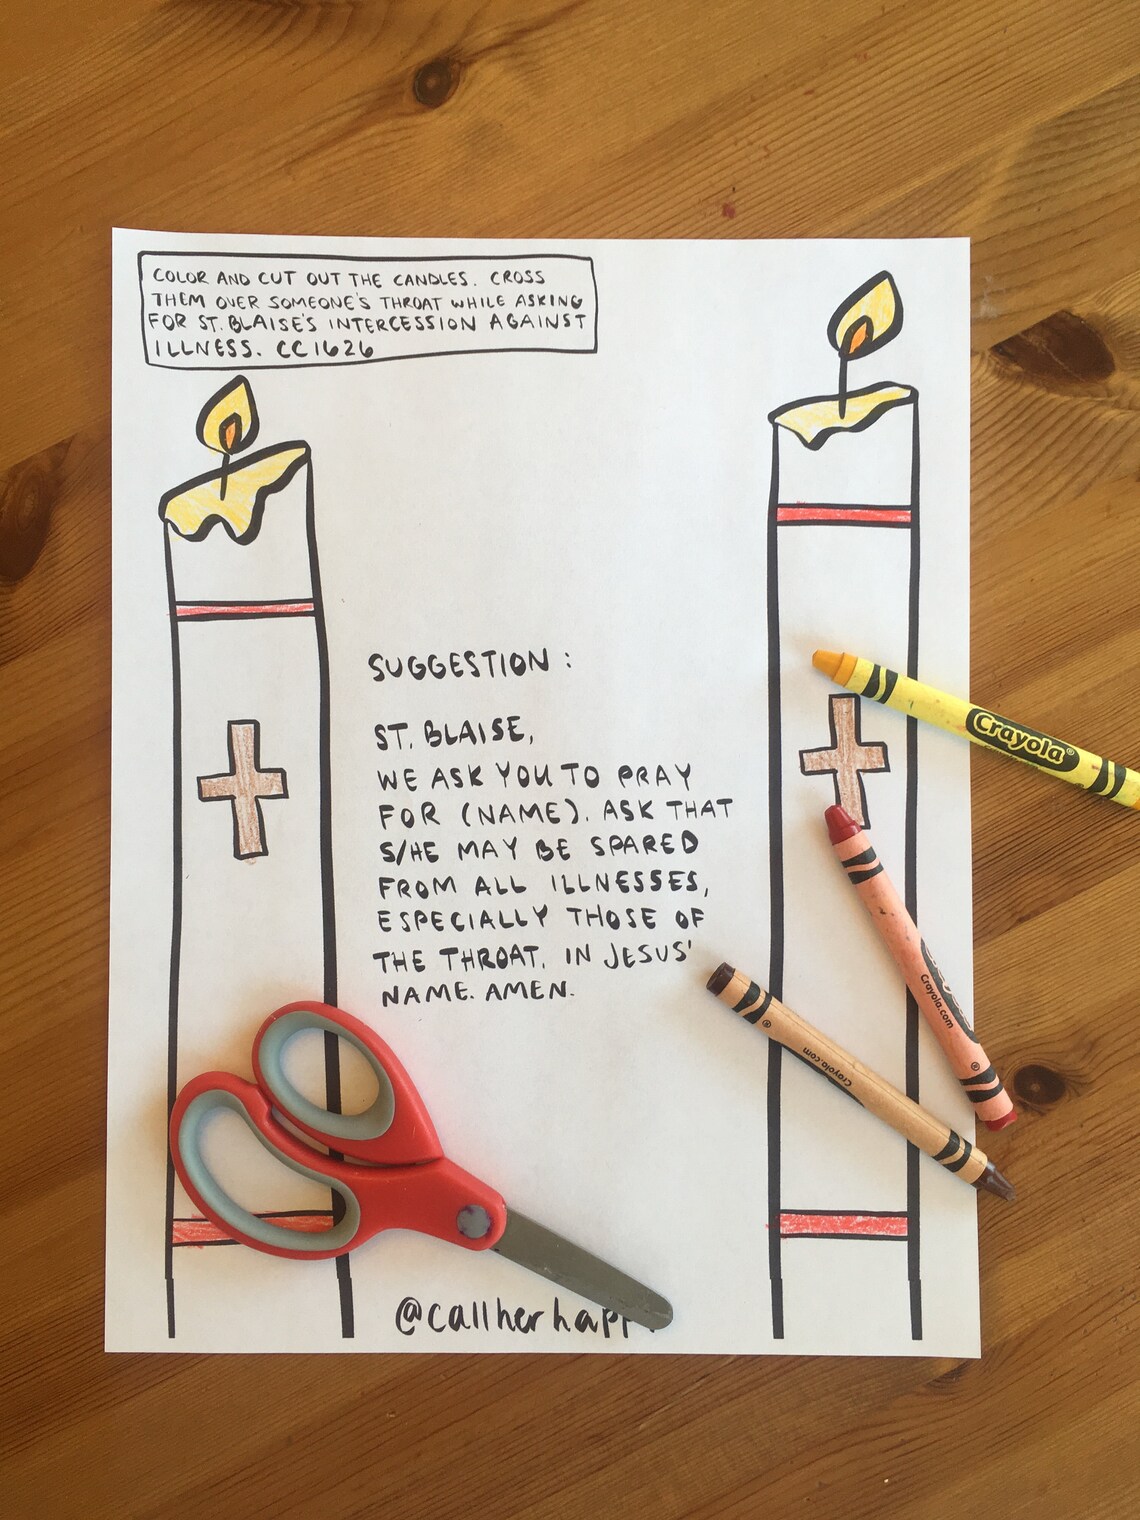 COLOR AND CUT OUT THE CANDLES. CROSS
THEM OVER SOMEONE'S THROAT WHILE ASKING
FOR ST. BLAISE'S INTERCESSION AGAINST
ILLNESS. CC1626
SUGGESTION:
ST. BLAISE,
WE ASK YOU TO PRAY
FOR (NAME). ASK THAT
S/HE MAY BE SPARED
FROM ALL ILLNESSES,
ESPECIALLY THOSE OF
THE THROAT. IN JESUS'
NAME. AMEN.
Crayola®
Crayola.com
Crayola.com